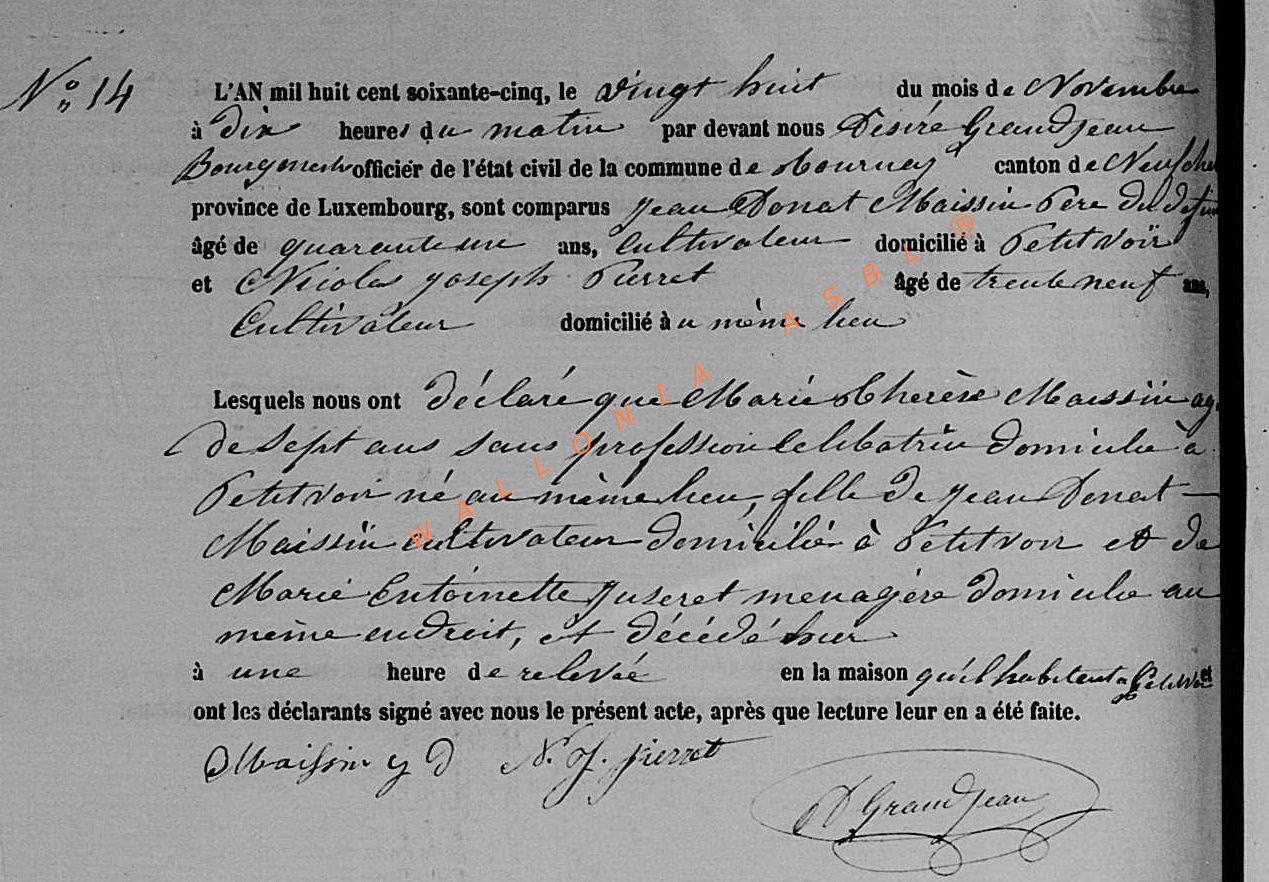 N° 14
L'AN mil huit cent soixante-cinq, le vingt huit du mois de Novembre
à dix heures du matin par devant nous Désiré Grandjean
Bourgmestre officier de l'état civil de la commune de Tournay canton de Neufchâ
province de Luxembourg, sont comparus Jean Donat Maissin Pere du defun
âgé de quarante un ans, Cultivateur domicilié à Petitvoir
et Nicolas Joseph Pierret âgé de trente neuf ans,
Cultivateur domicilié au même lieu
Lesquels nous ont déclaré que Marie Therèse Maissin ag
de sept ans sans profession celibatrin domicilié à
Petitvoir né au même lieu, fille de Jean Donat
Maissin cultivateur domicilié à Petitvoir et de
Marie Entoinette Juseret menagère domicilié au
même endroit, et décédé hier
à une heure de relevée en la maison qu'il habitent a Petitvoir et
ont les déclarants signé avec nous le présent acte, après que lecture leur en a été faite.
Maissin J D N. J. pierret
D Grandjean
WALLONIA ASBL ®